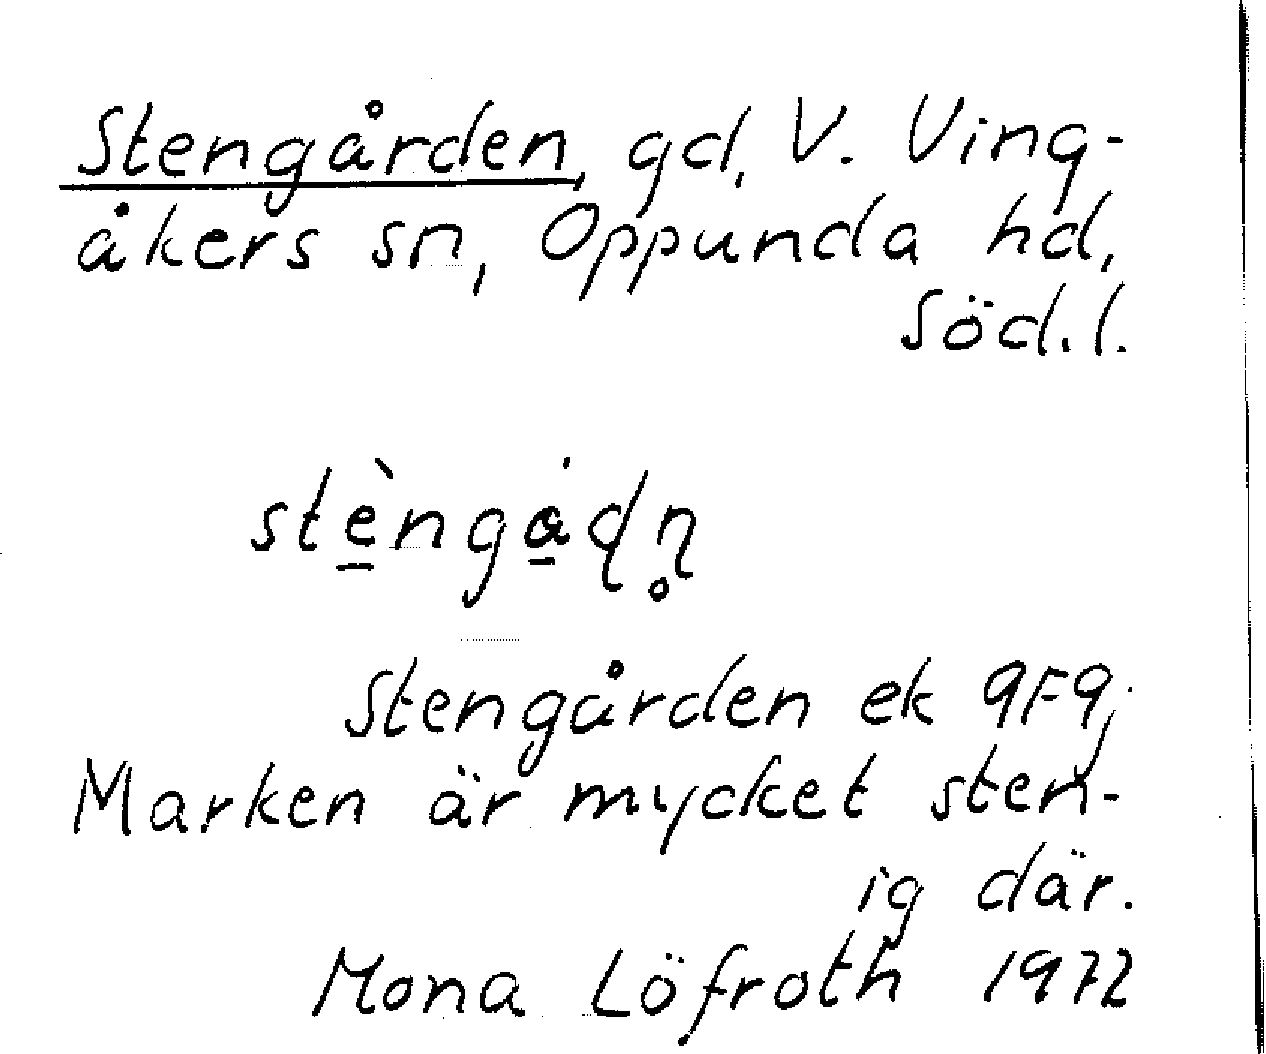 Stengården, gd, V. Ving-
åkers sn, Oppunda hd,
Söd.l.
stè̱ngå̱ɖɳ̥
Stengården ek 9F9j
Marken är mycket sten-
ig där.
Mona Löfroth 1972